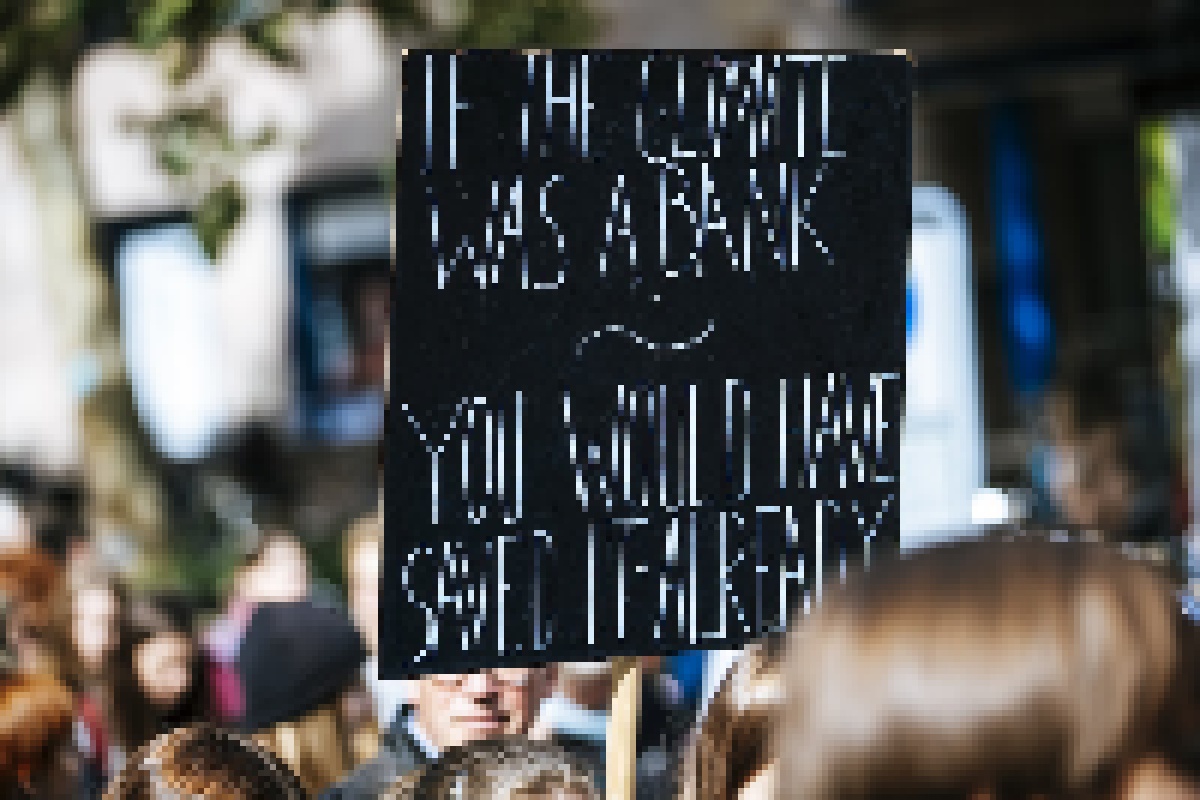 IF THE CLIMATE
WAS A BANK
YOU WOULD HAVE
SAVED IT ALREADY